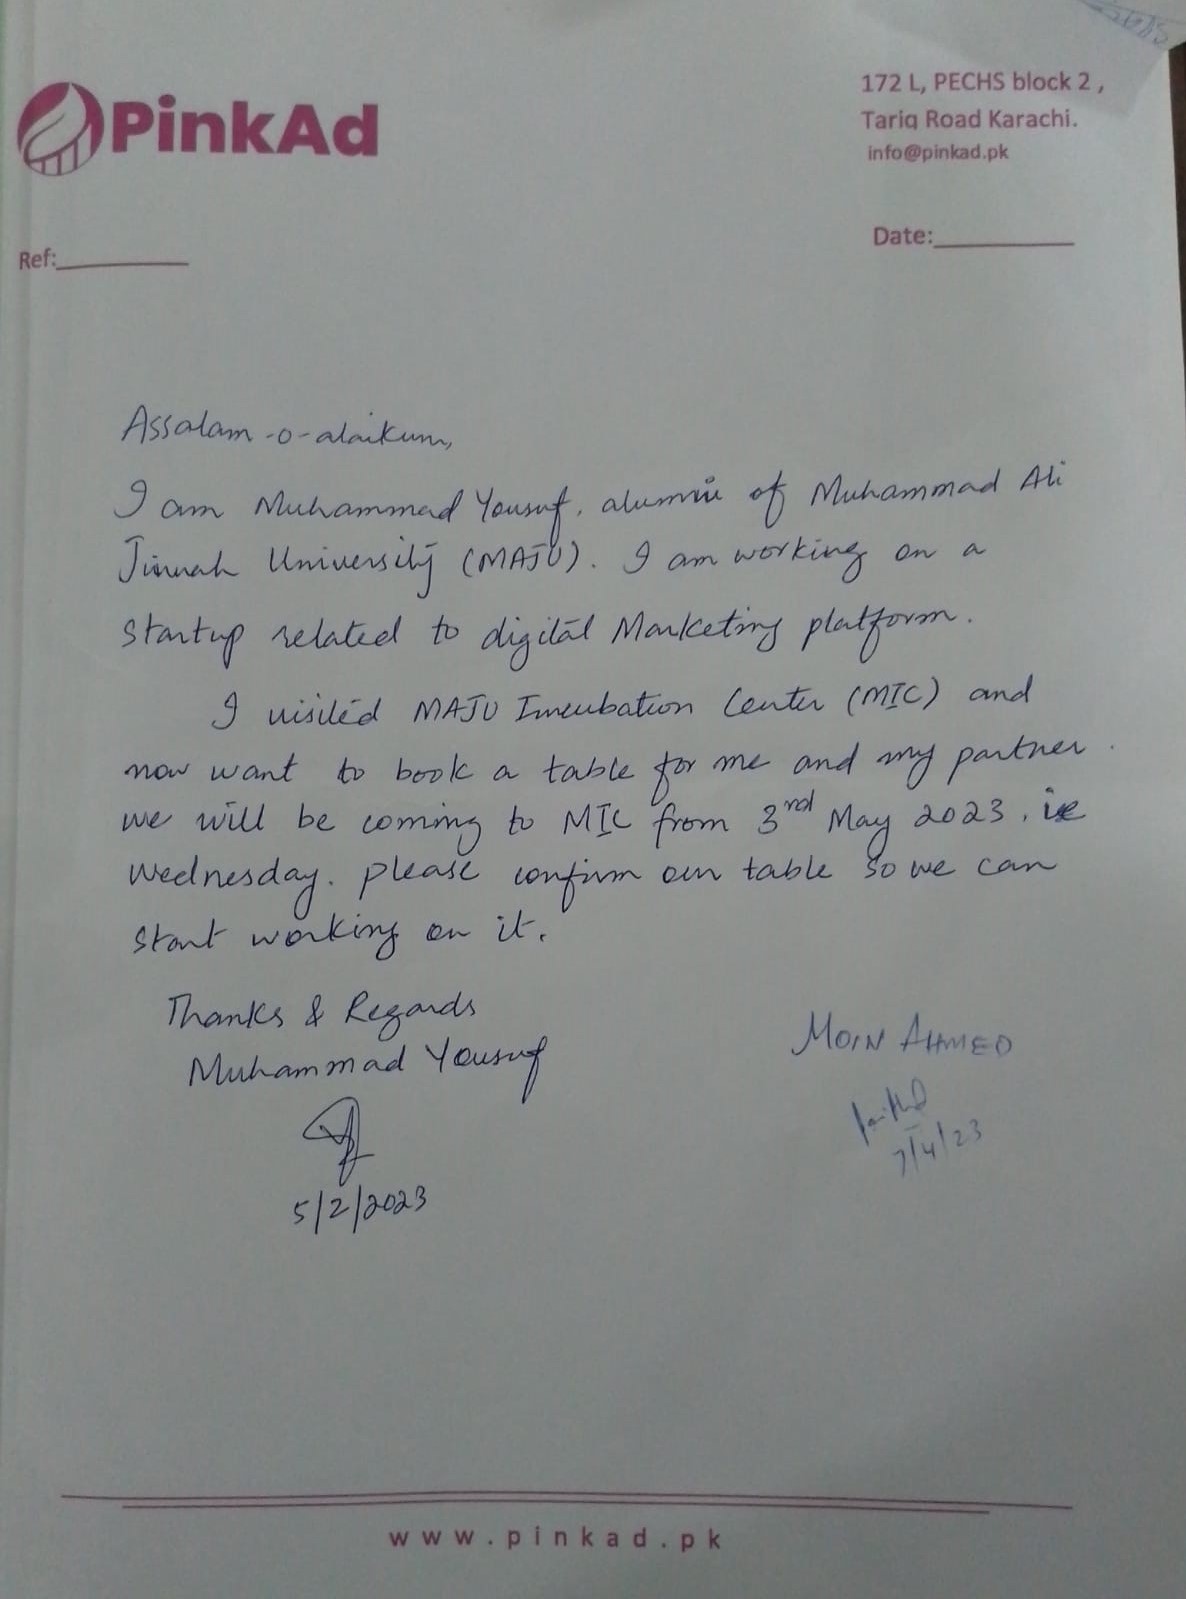 PinkAd
172 L, PECHS block 2 ,
Tariq Road Karachi.
info@pinkad.pk
Ref:
Date:
Assalam-o-alaikum,
I am Muhammad Yousuf, alumni of Muhammad Ali
Jinnah University (MAJU). I am working on a
startup related to digital Marketing platform.
I visited MAJU Incubation Center (MIC) and
now want to book a table for me and my partner.
we will be coming to MIC from 3rd May 2023, ie
wednesday. please confirm our table so we can
start working on it.
Thanks & Regards
Muhammad Yousuf
5/2/2023
MOIN AHMED
7/4/23
www.pinkad.pk